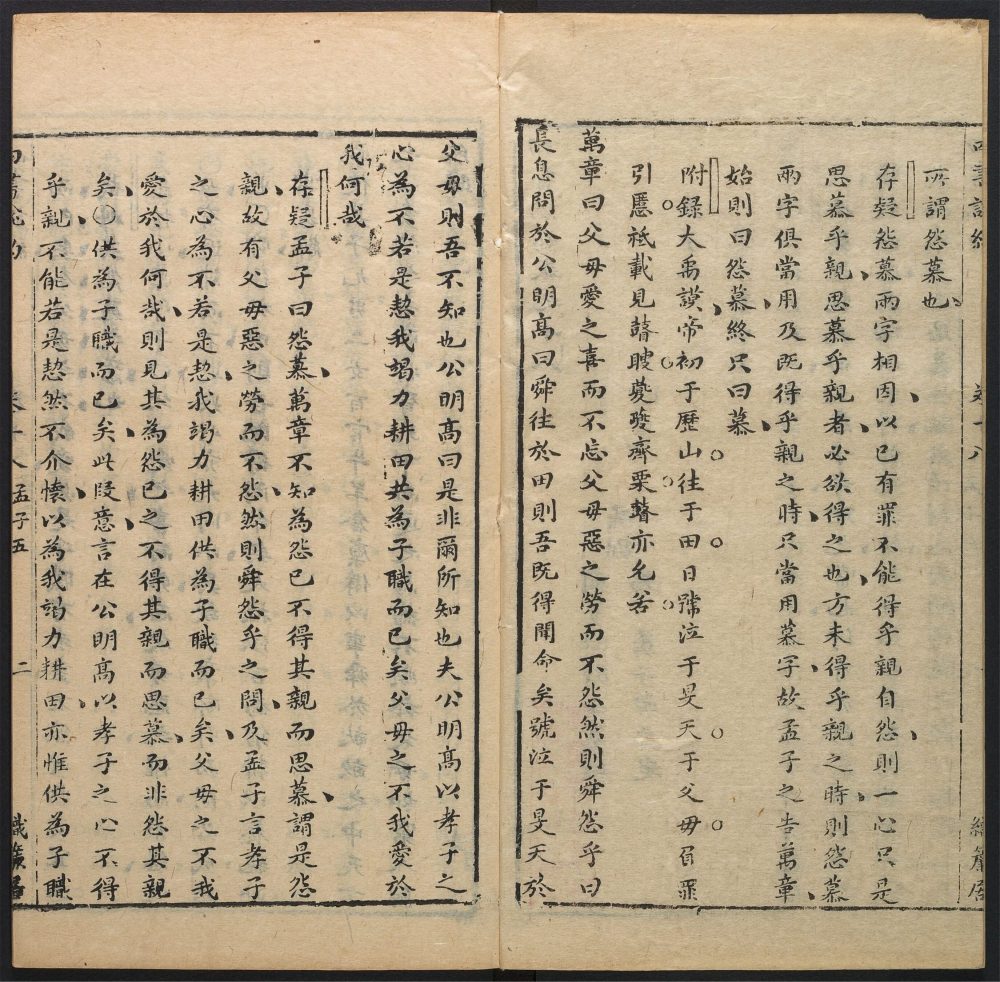 所謂怨慕也
存疑怨慕兩字相因以己有罪不能得乎親自怨則一心只是
思慕乎親思慕乎親者必欲得之也方未得乎親之時則怨慕
兩字俱當用及既得乎親之時只當用慕字故孟子之告萬章
始則曰怨慕終只曰慕
附錄大禹謨帝初于歷山往于田日號泣于旻天于父母負罪
引慝祗載見瞽瞍夔夔齊栗瞽亦允若
萬章曰父母愛之喜而不忘父母惡之勞而不怨然則舜怨乎曰
長息問於公明高曰舜往於田則吾既得聞命矣號泣于旻天於
父母則吾不知也公明高曰是非爾所知也夫公明高以孝子之
心為不若是恝我竭力耕田共為子職而已矣父母之不我愛於
我何哉
存疑孟子曰怨慕萬章不知為怨己不得其親而思慕謂是怨
親故有父母惡之勞而不怨然則舜怨乎之問及孟子言孝子
之心為不若是恝我竭力耕田供為子職而已矣父母之不我
愛於我何哉則見其為怨己之不得其親而思慕而非怨其親
矣供為子職而已矣此段意言在公明高以孝子之心不得
乎親不能若是恝然不介懷以為我竭力耕田亦惟供為子職
孟子五
二